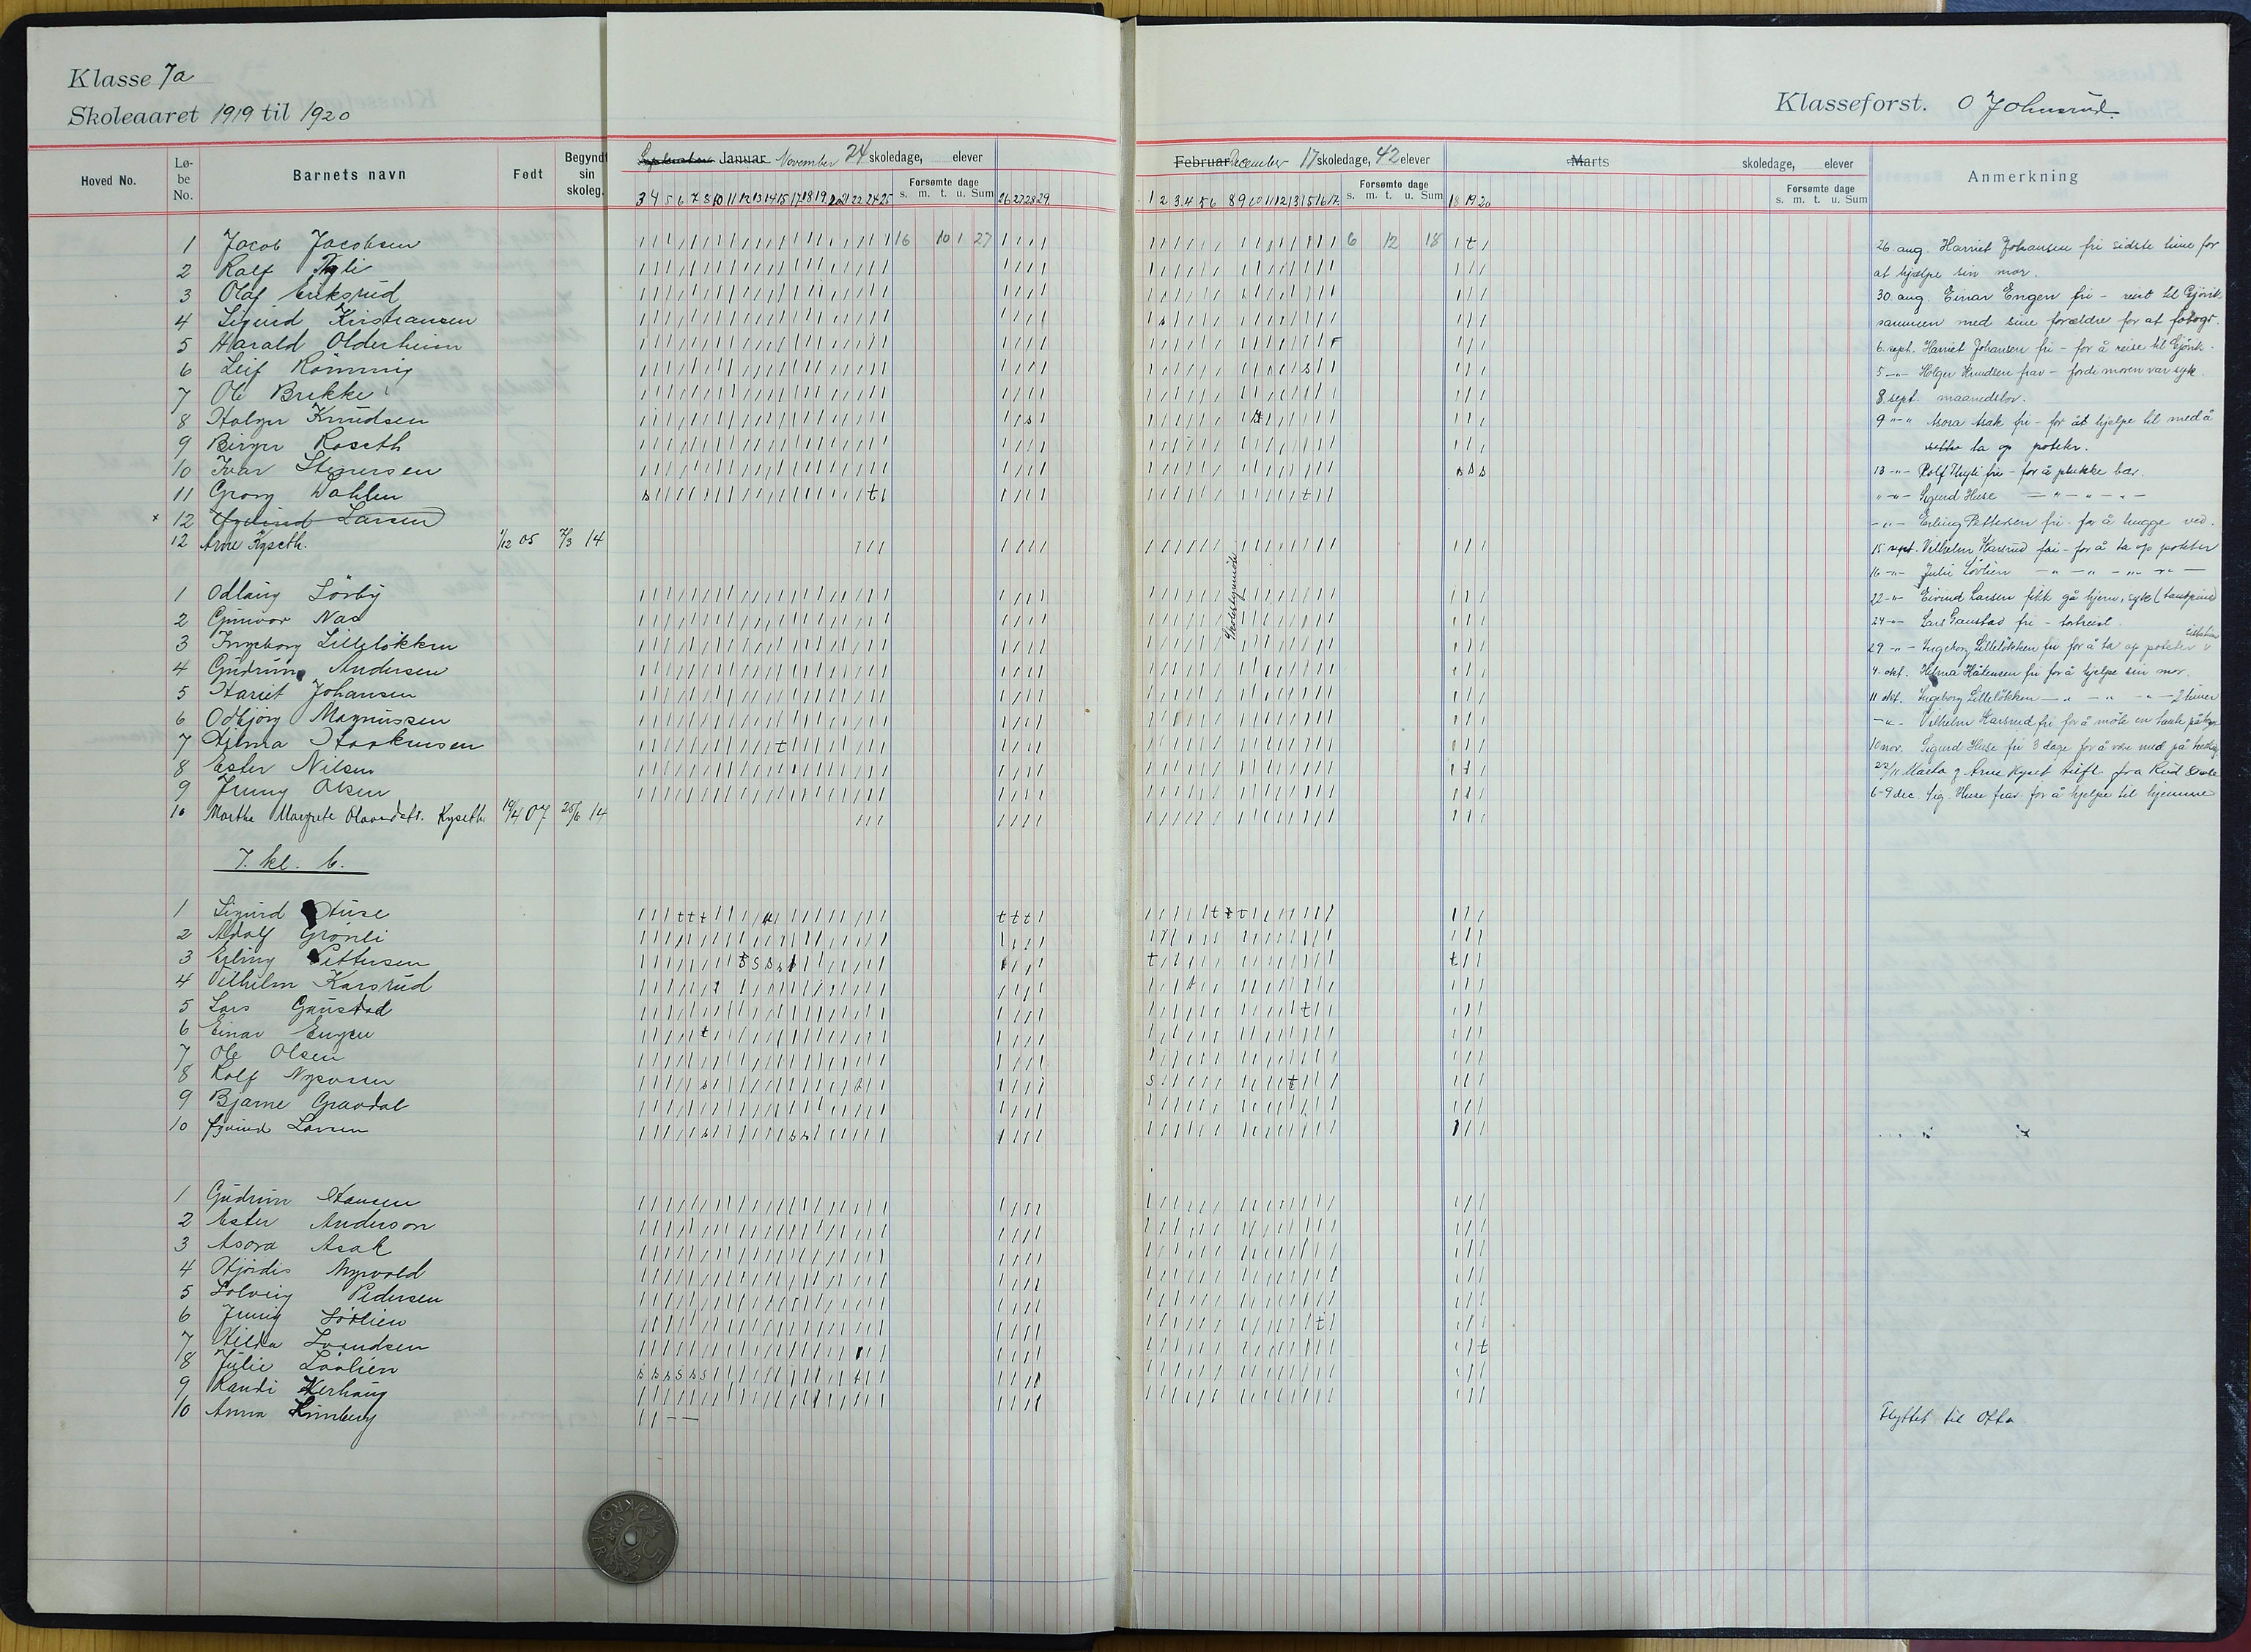 Klasse 7a
Skoleaaret 1919 til 1920
Klasseforst. O Johnsrud.
Hoved No.
Løbe No.
Barnets navn
Født
Begyndt sin skoleg.
Januar November 24 skoledage, elever
Forsømte dage
s. m. t. u. Sum
3 4 5 6 7 8 10 11 12 13 14 15 17 18 19 20 21 22 24 25
26 27 28 29
Februar December 17 skoledage, 42 elever
Forsømte dage
s. m. t. u. Sum
1 2 3 4 5 6 8 9 10 11 12 13 15 16 17
18 19 20
Marts skoledage, elever
Forsømte dage
s. m. t. u. Sum
Anmerkning
1 Jacob Jacobsen 16 10 1 27 6 12 18
2 Ralf
3 Olaf Eriksrud
4 Sigurd Kristiansen
5 Harald Olderheim
6 Leif Rønning
7 Ole Brekke
8 Holger Knudsen
9 Birger Roseth
10 Ivar Stenersen
11 Georg Dahlen
x 12 Øyvind Larsen
12 Arne Kyseth. 1/12 05 7/3 14
Skolestyremöte
1 Odlaug Sörby
2 Gunvor Nas
3 Ingeborg Lillelökken
4 Gudrun Andersen
5 Hariet Johansen
6 Odbjörg Magnussen
7 Hilma Haakensen
8 Ester Nilsen
9 Jenny Olsen
10 Marthe Margrete Olavsdatr. Kyseth 19/4 07 25/6 14
7. kl. b.
1 Sigurd Huse
2 Adolf Grönli
3 Erling Pettersen
4 Vilhelm Karsrud
5 Lars Gaustad
6 Einar Engen
7 Ole Olsen
8 Rolf
9 Bjarne Gravdal
10 Øyvind Larsen
1 Gudrun Hansen
2 Ester Anderson
3 Asora Asak
4 Hjördis Myrvold
5 Solveig Pedersen
6 Jenny Lövlien
7 Hilda Svendsen
8 Julie Lövlien
9 Randi
10 Anna
26. aug. Harriet Johansen fri sidste time for
at hjælpe sin mor.
30. aug. Einar Engen fri - reist til Gjövik
sammen med sine forældre for at fotogr.
6. sept. Harriet Johansen fri - for å reise til Gjövik.
5 -"- Holger Knudsen frav - fordi moren var syk.
8. sept. maanedslov.
9 -"- Asora Asak fri - for åt hjelpe til med å
ta op poteter.
13 -"- Rolf fri - for å plukke bær.
" -"- Sigurd Huse - " - " - " -
-"- Erling Pettersen fri - for å hugge ved.
15 sept. Vilhelm Karsrud fri - for å ta op poteter
16 -"- Julie Lövlien - " - " - " - " -
22 -"- Eivind Larsen fikk gå hjem, syk (tannpine)
24 -"- Lars Gaustad fri - bortreist.
29 -"- Ingeborg Lillelökken fri for å ta op poteter
4. okt. Hilma Håkensen fri for å hjelpe sin mor.
11 okt. Ingeborg Lillelökken - " - " - " - 2 timer
-"- Vilhelm Karsrud fri for å möte en tante på
10 nov. Sigurd Huse fri 3 dage for å være med på
22/11 Marta og Arne Kyset tilfl. fra Rud skole
6-9 dec. Sig. Huse frav. for å hjelpe til hjemme
Flyttet til Otta
5 KRONER